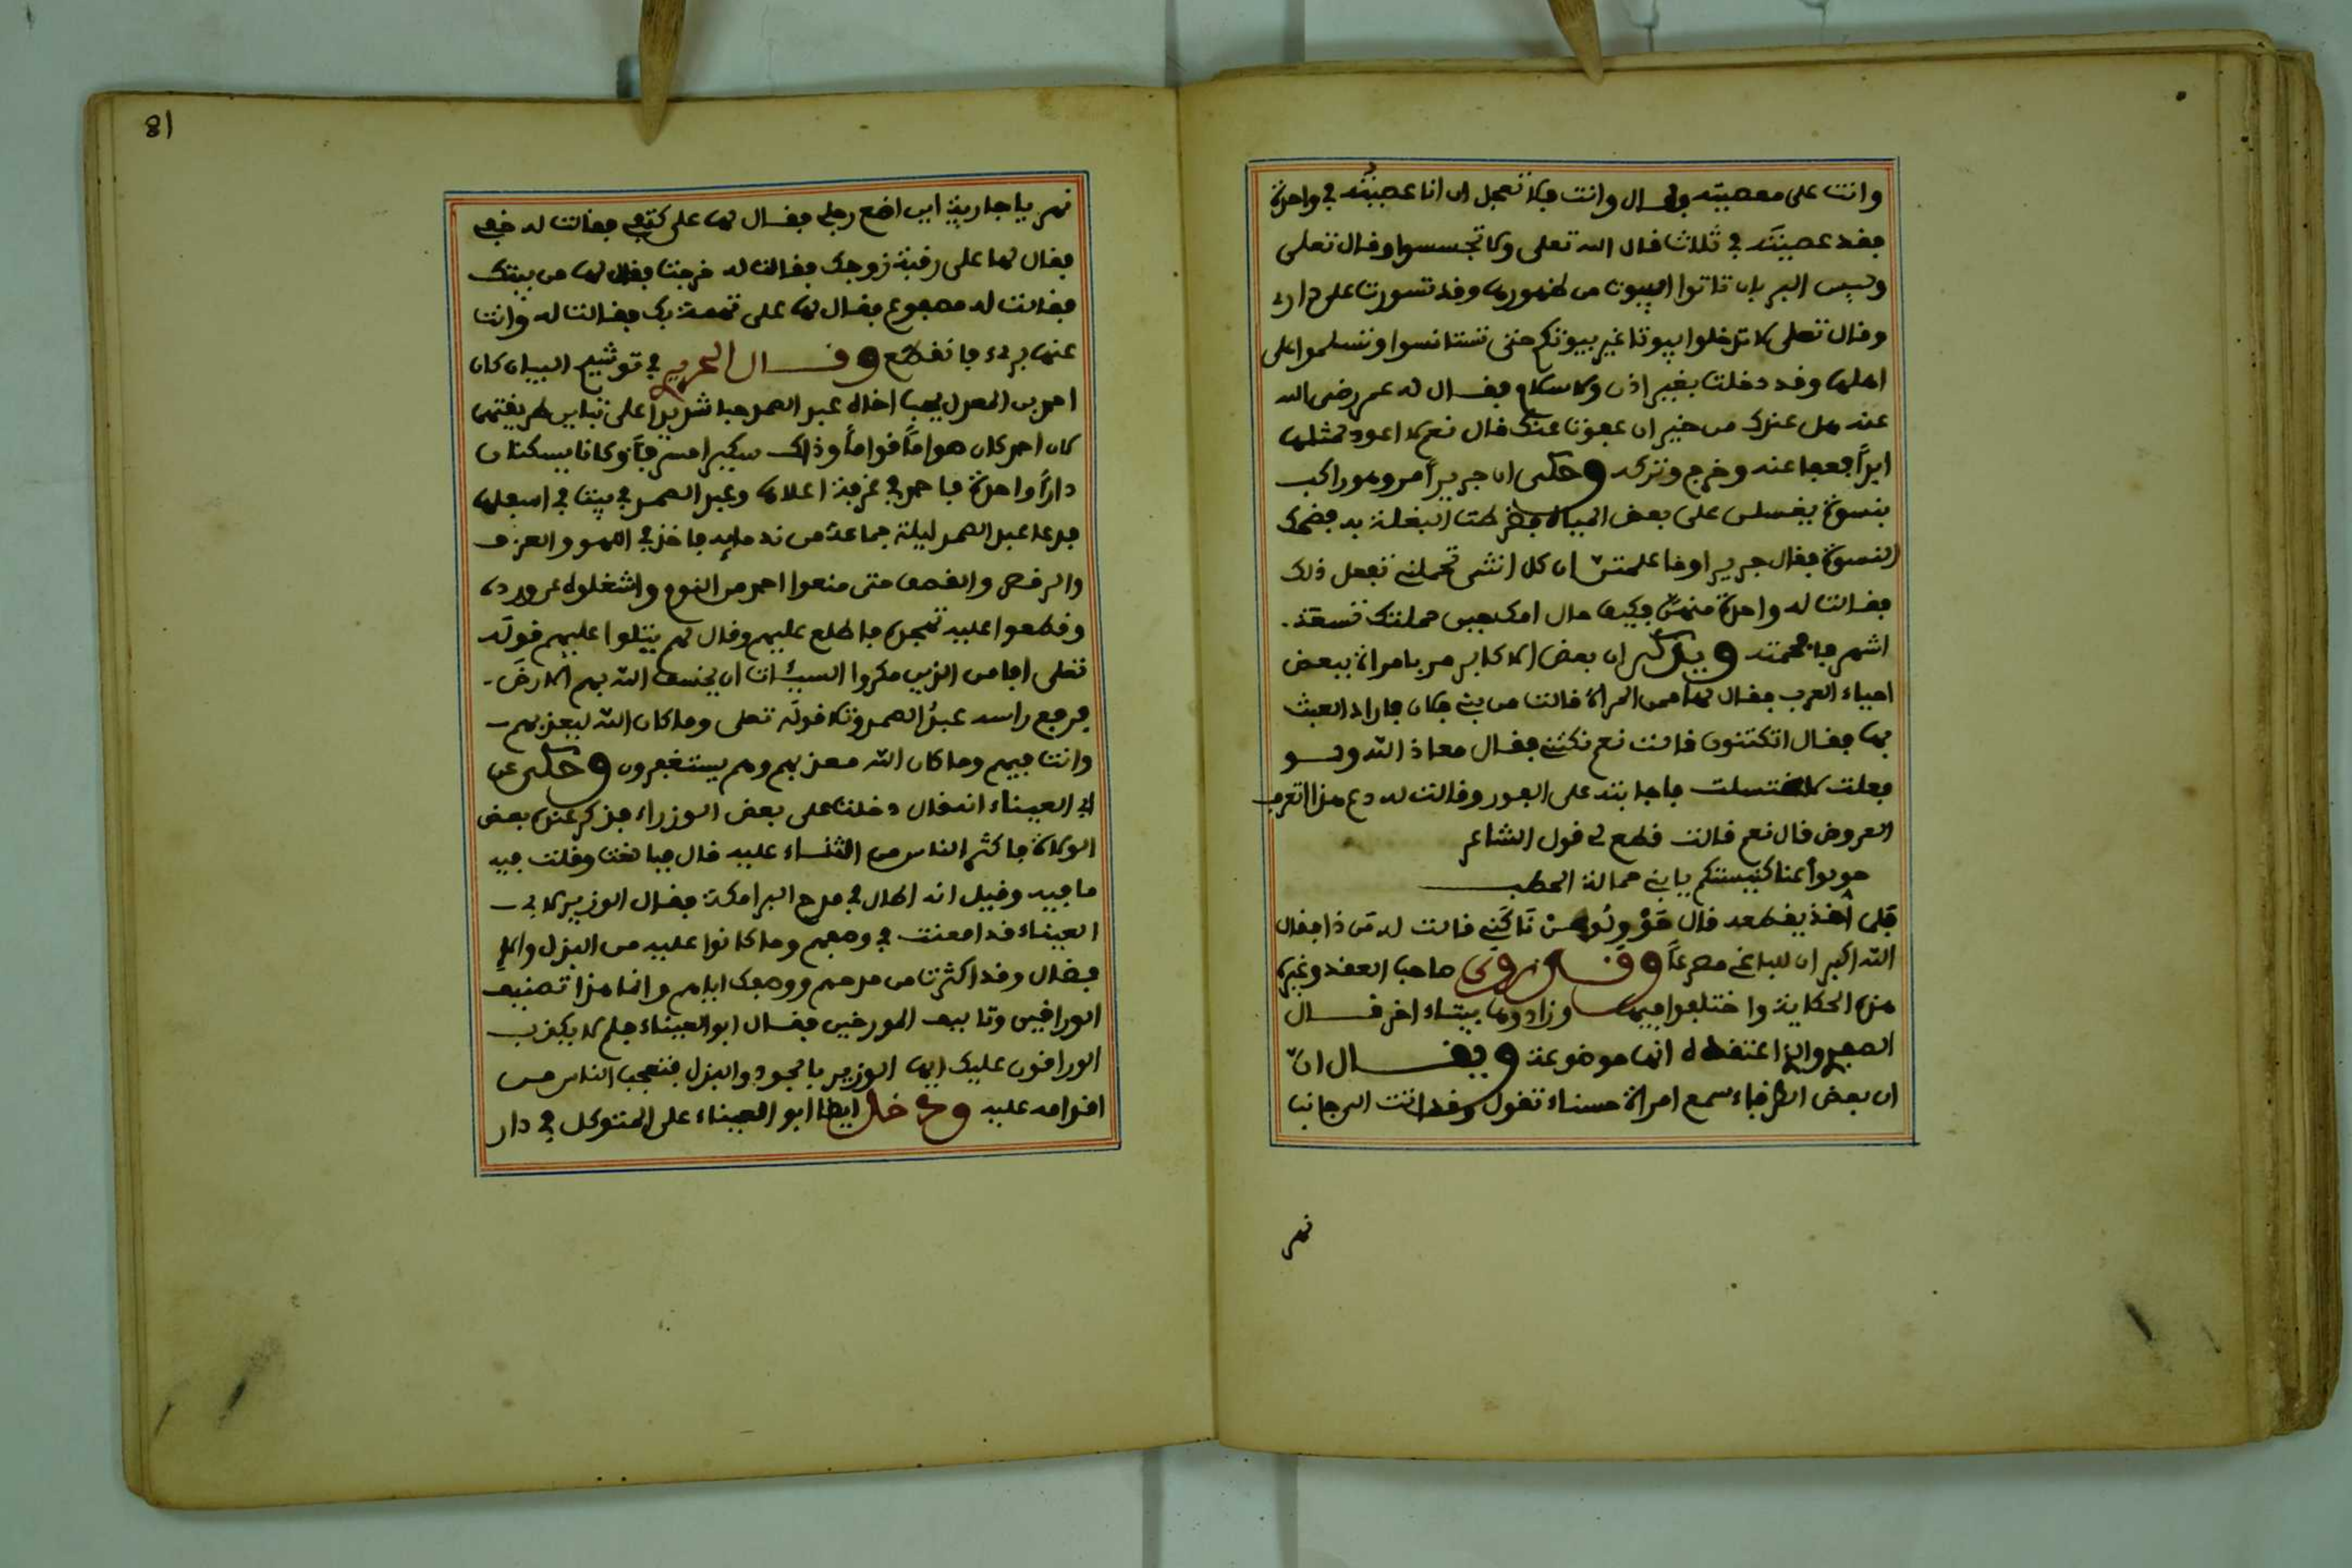 وانت على معصيته فقال وانت فلا تعجل ان انا عصيته في واحدة
فقد عصيته في ثلاث قال الله تعلى ولا تجسسوا وقال تعلى
وليس البر بان تاتوا البيوت من ظهورها وقد تسورت على داري
وقال تعلى لا تدخلوا بيوتا غير بيوتكم حتى تستانسوا وتسلموا على
اهلها وقد دخلت بغير اذن ولا سلام فقال له عمر رضى الله
عنه هل عندك من خير ان عفوت عنك قال نعم لا اعود لمثلها
ابداً فعفا عنه وخرج وتركه وحكى ان جريراً مر وهو راكب
بنسوة يغسلن على بعض المياه فضرطت البغلة به فضحك
النسوة فقال جرير اوما علمتن ان كل انثى تحملني تفعل ذلك
فقالت له واحدة منهن فكيف حال امك حين حملتك تسعة
اشهر فافحمته ويذكر ان بعض الاكابر مر بامراة ببعض
احياء العرب فقال لها ممن المراة قالت من بني فلان فاراد العبث
بها فقال اتكتنون قالت نعم نكتني فقال معاذ الله ولو
فعلت لاغتسلت فاجابته على الفور وقالت له دع هذا اتعرف
العروض قال نعم قالت قطع لي قول الشاعر
حولوا عنا كنيستكم يا بني حمالة الحطب
فلما اخذ يقطعه قال حَوْلُو عَنْ نَاكَنِي قالت له من ذا فقال
الله اكبر ان للباغي مصرعاً وقد روى صاحب العقد وغيره
هذه الحكاية واختلفوا فيها وزادوها بيتاء اخر قال
الصفدي والذا اعتقده انها موضوعة ويقال ان
ان بعض الظرفاء سمع امراة حسناء تقول وقد اتت الى جانب
نهر
81
نهر يا جارية اين اضع رجلي فقال لها على كتفي فقالت له خفي
فقال لها على رقبة زوجك فقالت له خرجت فقال لها من بيتك
فقالت له مصفوع فقال لها على تهمة بك فقالت له وانت
عنها بريء فانقطع وقال الحريري في توشيح البيان كان
احمد بن المعدل يحب اخاه عبد الصمد حبا شديداً على تباين طريقتهما
كان احمد كان صواماً قواماً وذلك سكيرا مسرفاً وكانا يسكنان
داراً واحدة فاحمد في غرفة اعلاها وعبد الصمد في بيت في اسفلها
فدعا عبد الصمد ليلة جماعة من ندمايه فاخذ في اللهو والعزف
والرقص والقصف حتى منعوا احمد من النوم واشغلوه عن ورده
وقطعوا عليه تهجده فاطلع عليهم وقال لهم يتلوا عليهم قوله
تعلى افامن الذين مكروا السيئات ان يخسف الله بهم الارض
فرفع راسه عبد الصمد وتلا قوله تعلى وما كان الله ليعذبهم
وانت فيهم وما كان الله معذبهم وهم يستغفرون وحكى عن
ابي العيناء انه قال دخلت على بعض الوزراء فذكر عنده بعض
الولاة فاكثر الناس من الثناء عليه قال فبالغت وقلت فيه
ما فيه وقيل انه اطال في مدح البرامكة فقال الوزير لابي
العيناء قد امعنت في وصفهم وما كانوا عليه من البذل والا
فضال وقد اكثرت من مدحهم ووصفك اياهم وانما هذا تصنيف
الوراقين وتاليف المورخين فقال ابو العيناء فلم لا يكذب
الوراقون عليك ايها الوزير بالجود والبذل فتعجب الناس من
اقدامه عليه ودخل ايضا ابو العيناء على المتوكل في دار